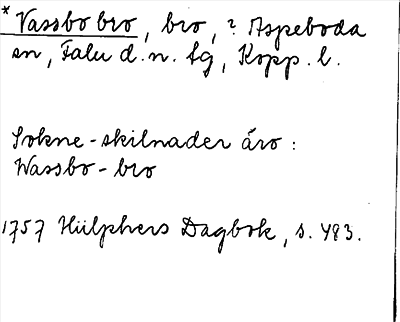 * Vassbo bro, bro, ? Aspeboda
sn, Falu d. n. tg, Kopp. l.
Sokne-skilnader äro:
Wassbo-bro
1757 Hülphers Dagbok, s. 483.